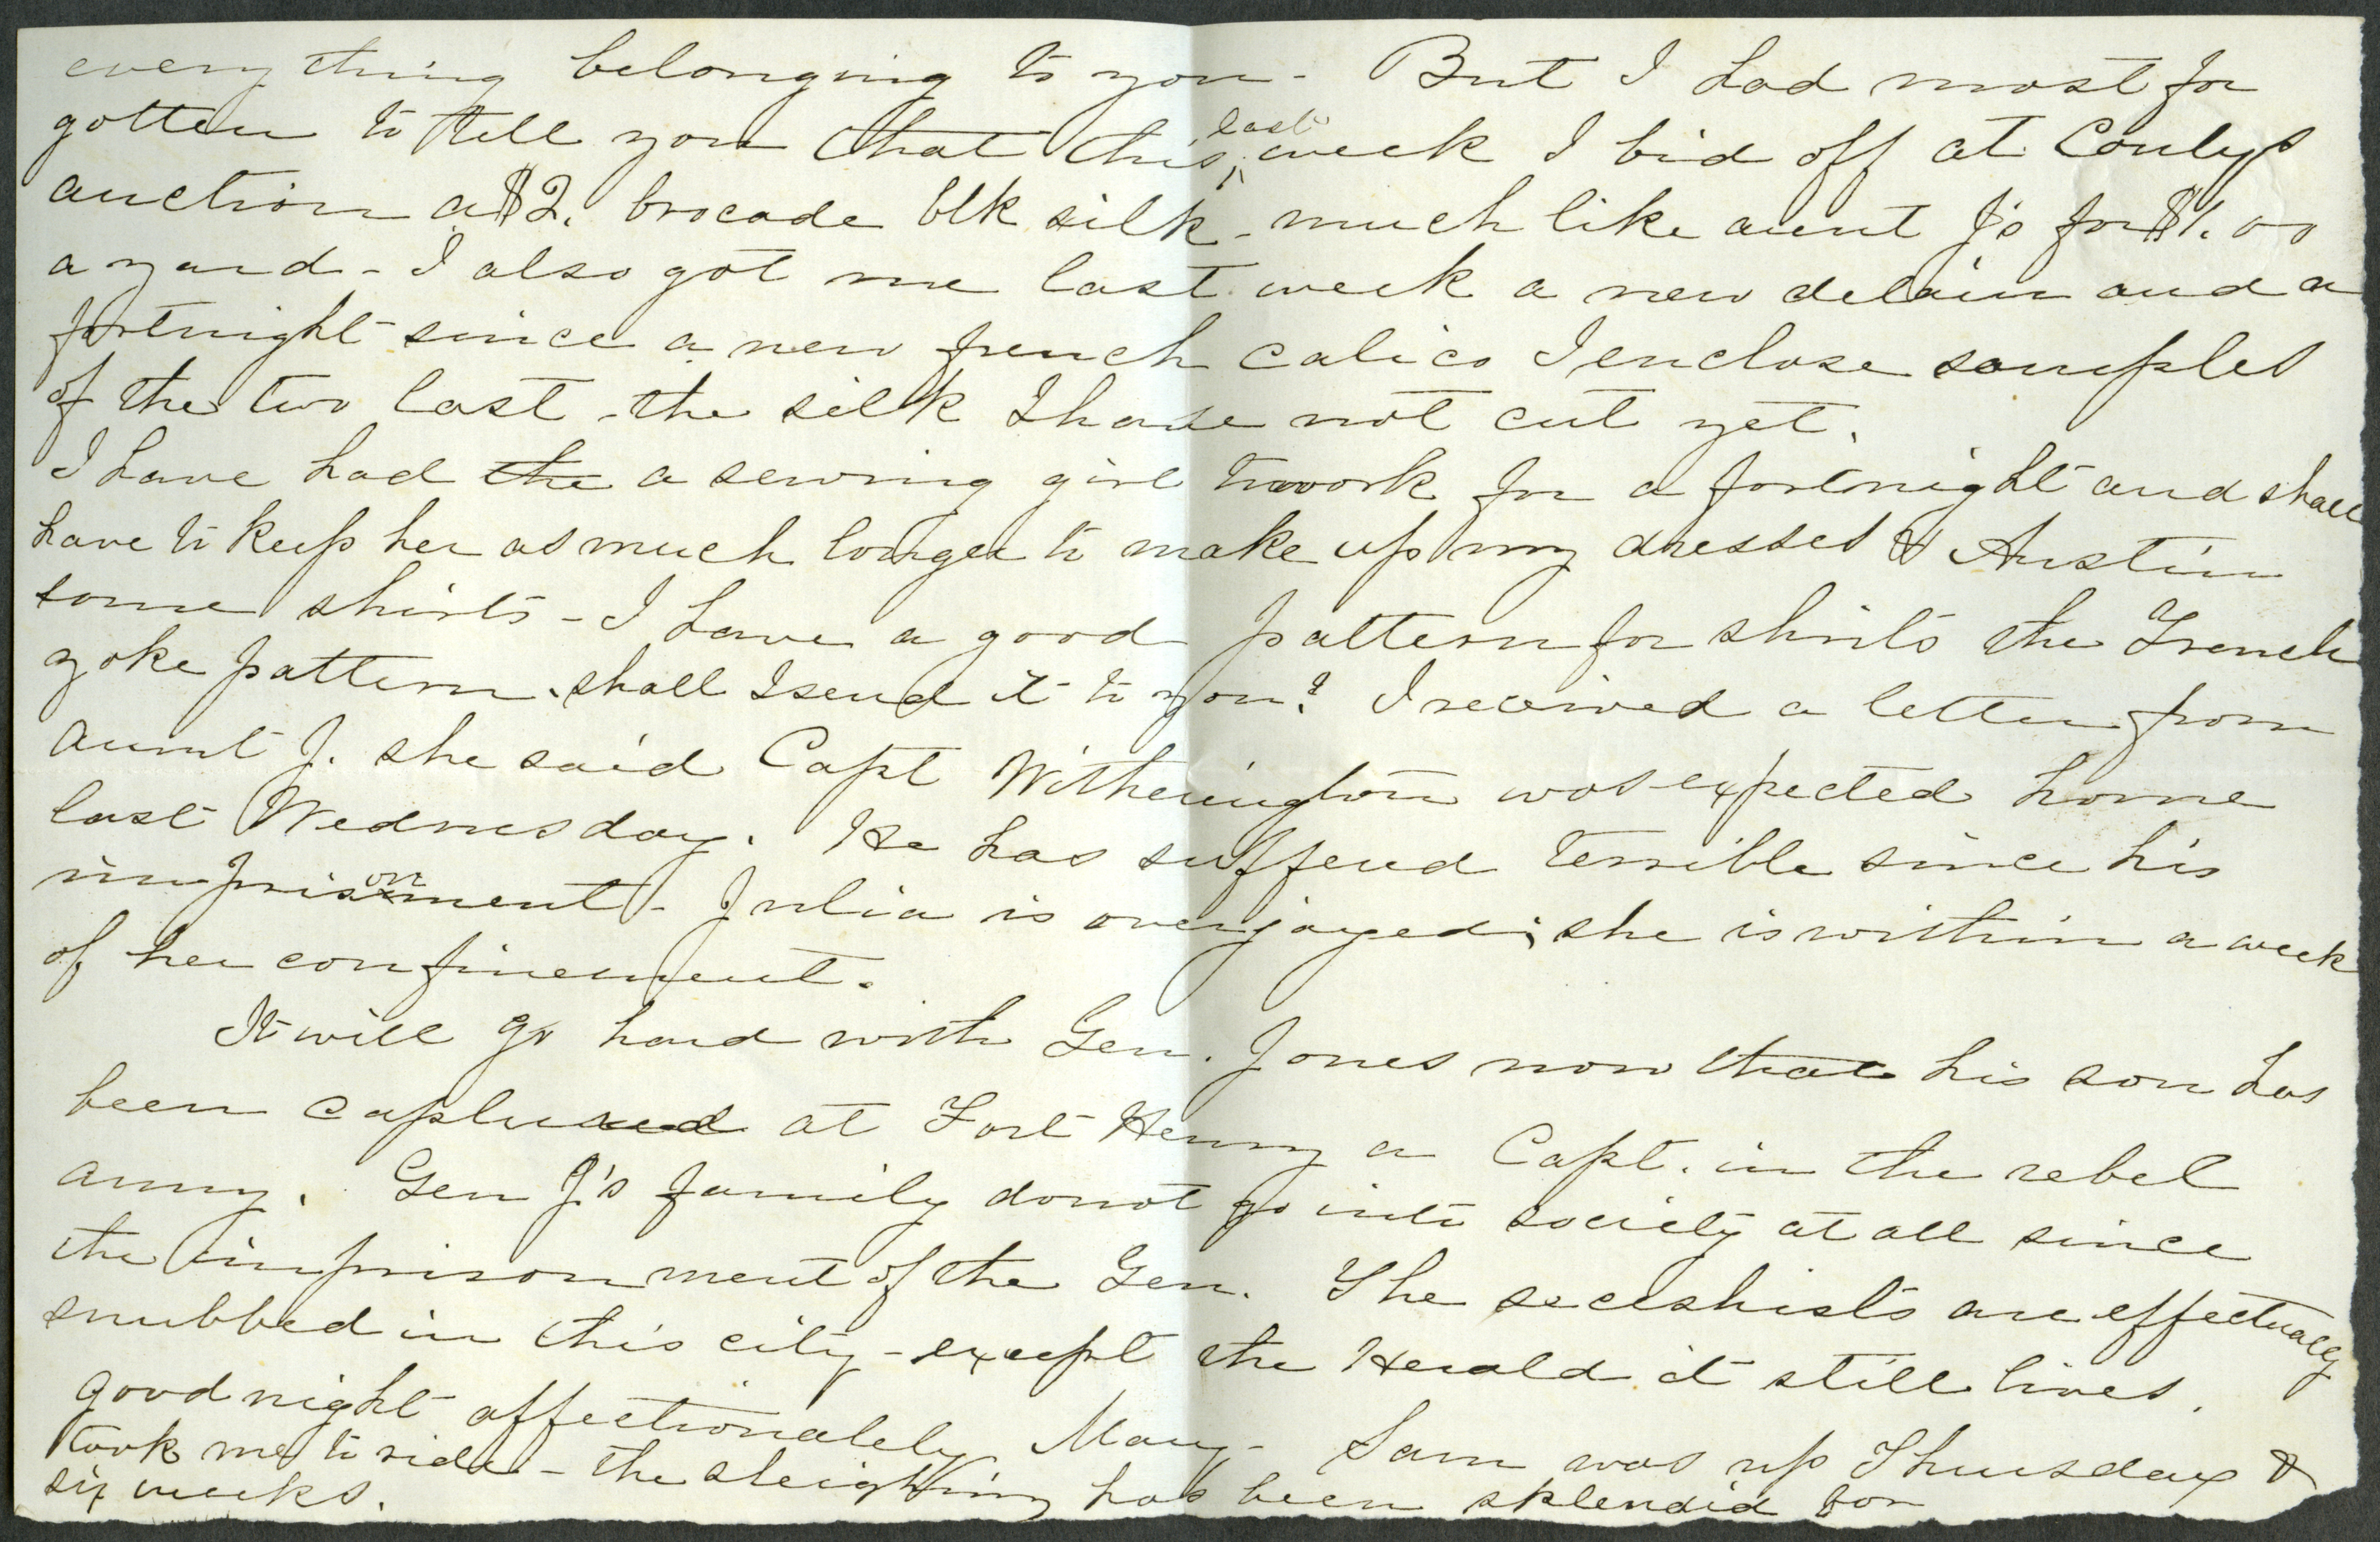 every thing belonging to you - But I had most for
gotten to tell you that this last week I bid off at Conlys
auction a $2. brocade blk silk - much like aunt J's for $1.00
a yard - I also got me last week a new delain and a
fortnight since a new french calico I enclose samples
of the two last - the silk I have not cut yet.
I have had the a sewing girl to work for a fortnight and shall
have to keep her as much longer to make up my dresses & Austin
some shirts - I have a good pattern for shirts the French
yoke pattern. shall I send it to you? I received a letter from
aunt J. she said Capt Witherington was expected home
last Wednesday. He has sufferd terrible since his
imprisonment - Julia is overjoyed; she is within a week
of her confinement.
It will go hard with Gen. Jones now that his son has
been captured at Fort Henry a Capt. in the rebel
army. Gen J's family do not go into society at all since
the imprisonment of the Gen. The seceshists are effectually
snubbed in this city - except the Herald it still lives.
good night affectionately Mary - Sam was up Thursday &
took me to ride - the sleighing has been splendid for
six weeks.